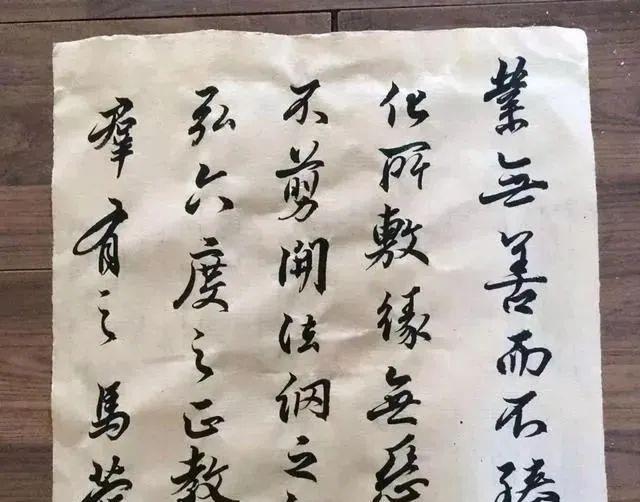 業無善而不臻
化所敷緣無惡
不剪開法網之
弘六度之正教
羣有之馬